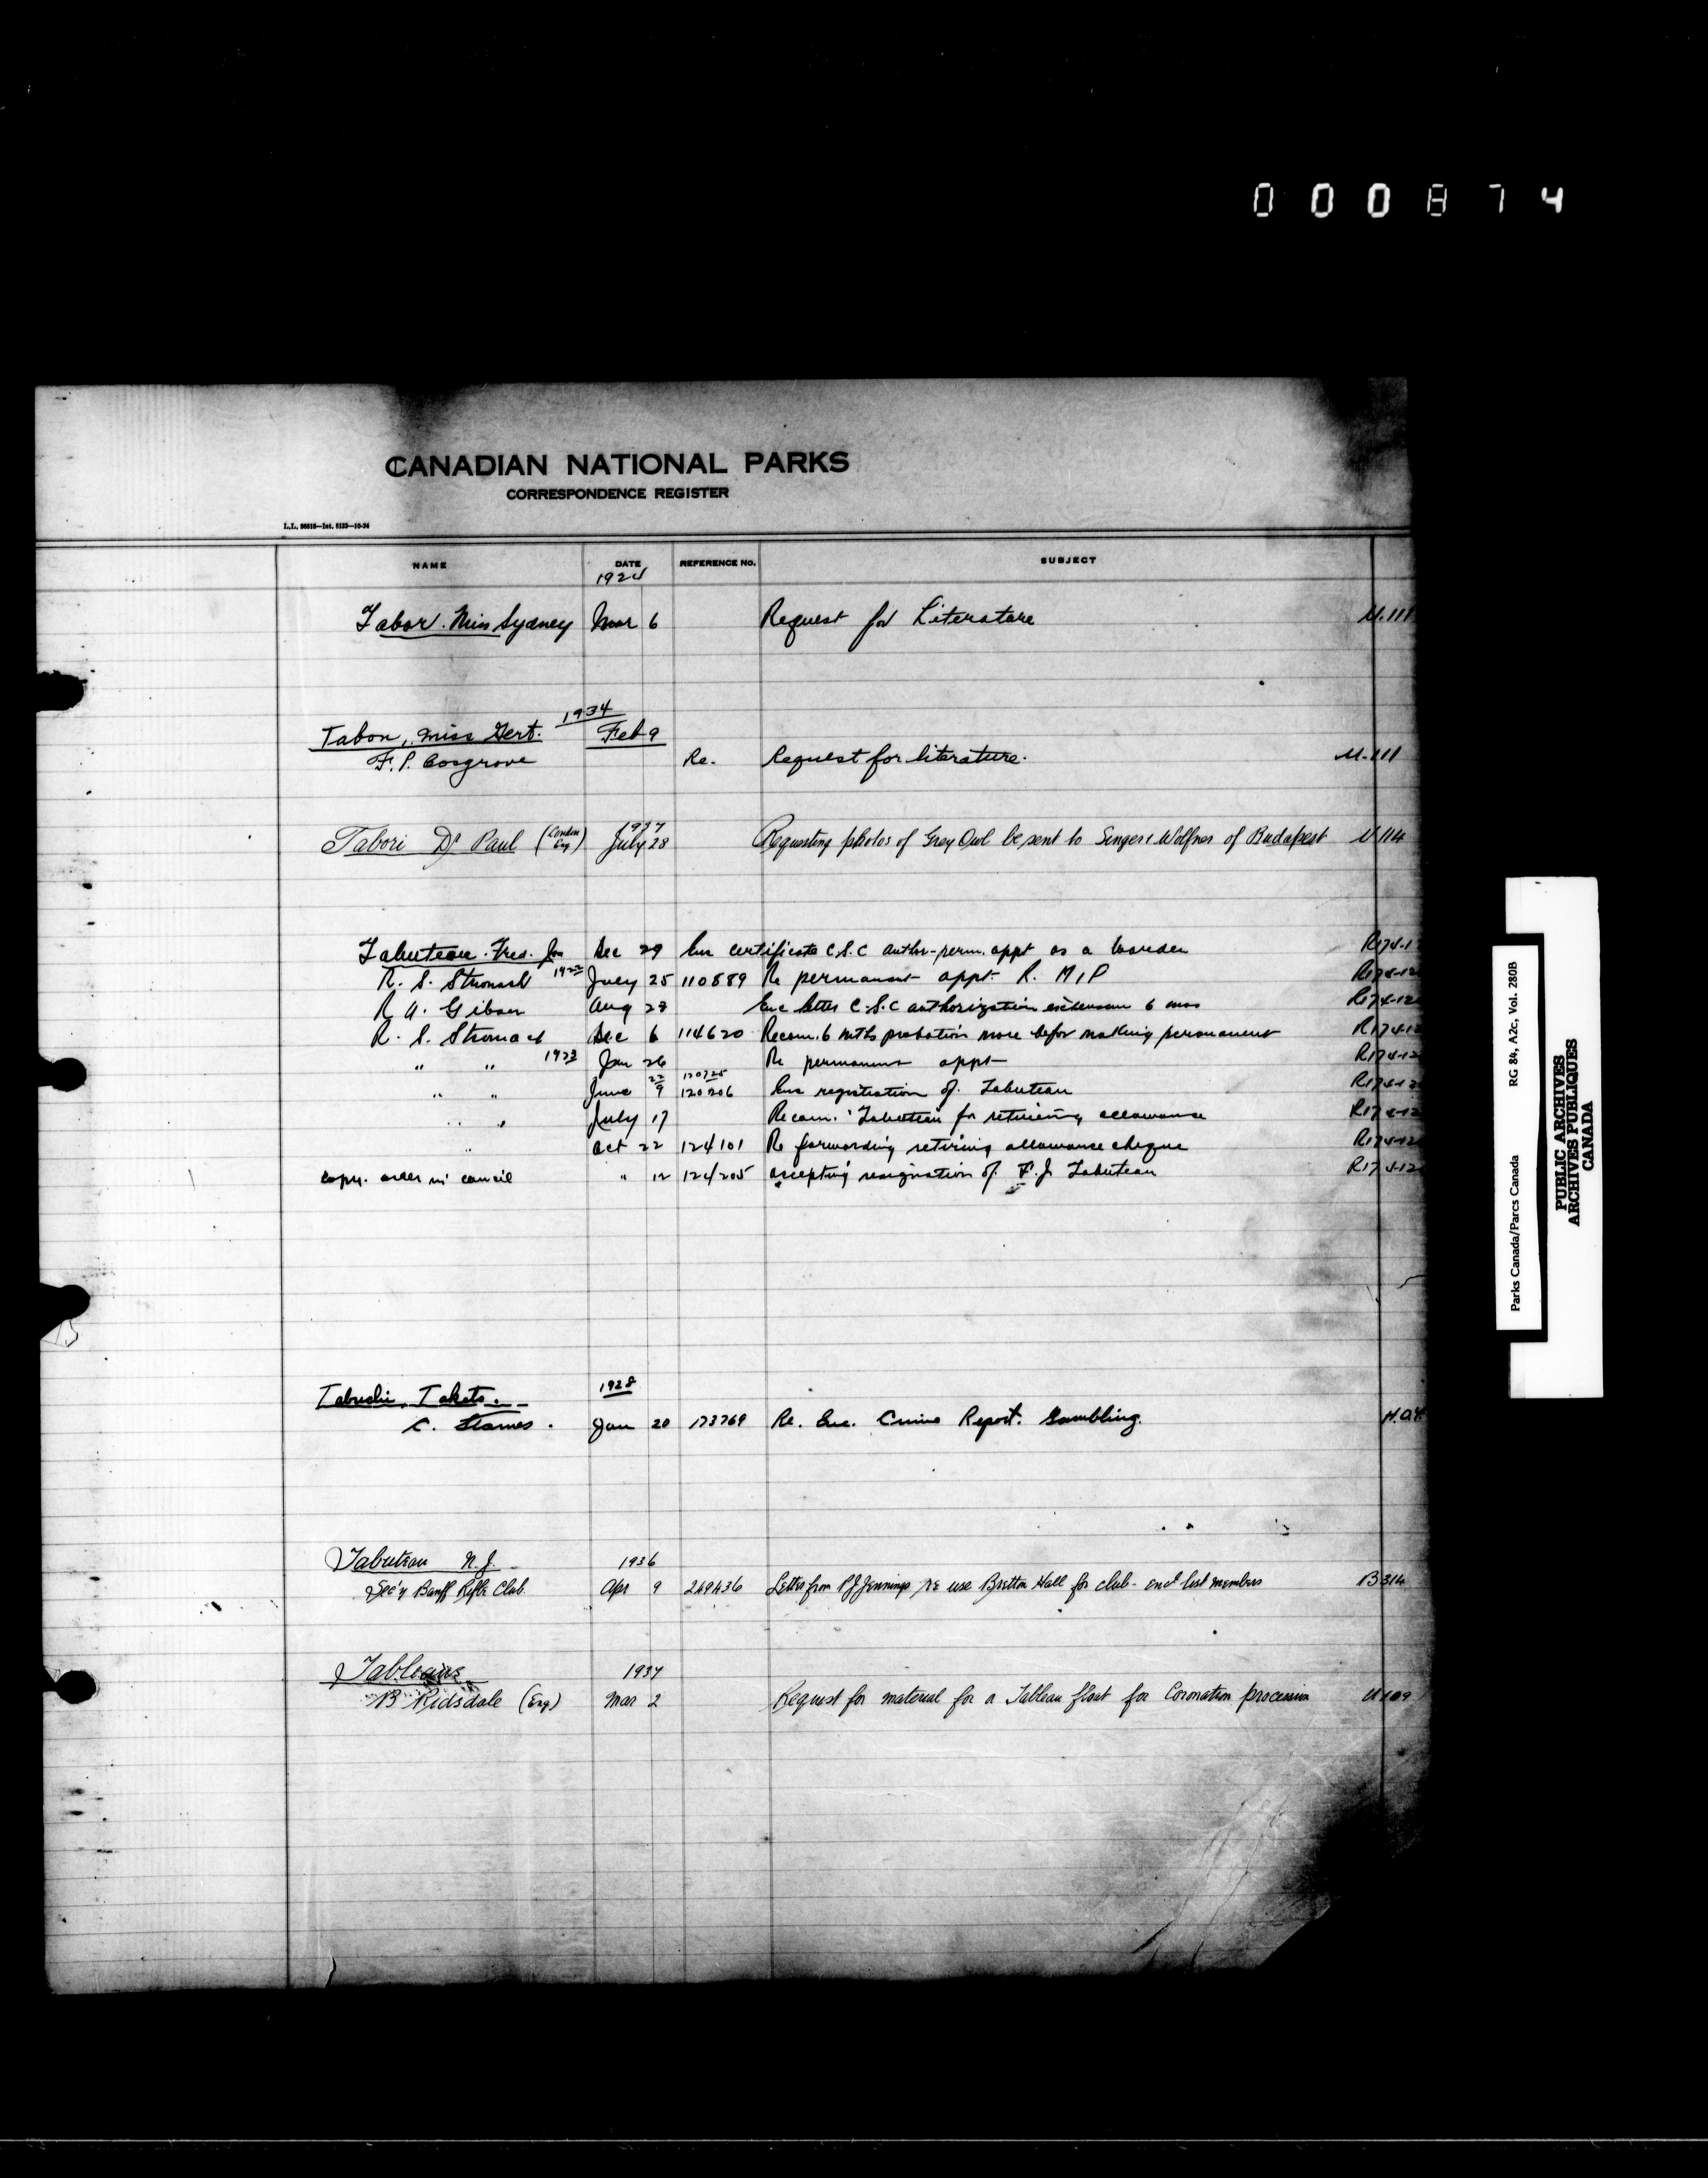 000874
CANADIAN NATIONAL PARKS
CORRESPONDENCE REGISTER
NAME DATE REFERENCE No. SUBJECT
1924
Tabor. Miss Sydney Mar 6 Request for Literature U.111
1934
Tabor, Miss Gert. Feb 9
F. P. Cosgrove Re. Request for literature. U.111
Tabori Dr Paul (London Eng) 1937 July 28 Requesting photos of Grey Owl be sent to Singer & Wolfner of Budapest U 114
Tabuteau. Fred. Jas Dec 29 Enc certificate C.S.C author-perm. appt as a Warden R174-1
R. S. Stronach 1922 July 25 110889 Re permanent appt. R.M.P
R A. Gibson Aug 28 Enc letter C.S.C authorization extension 6 mos R174-12
R. S. Stronach Dec 6 114620 Recom. 6 mths probation more befor making permanent R174-12
" " 1923 Jan 26 Re permanent appt R174-12
22 120725
" " June 9 120206 Enc registration of Tabuteau R174-12
" " July 17 Recom. Tabuteau for retiring allowance R174-12
" Oct 22 124101 Re forwarding retiring allowance cheque R174-12
copy. order in council " 12 124205 accepting resignation of F. J. Tabuteau R174-12
Tabuchi, Takato. 1928
C. Starnes. Jan 20 173769 Re. Enc. Crime Report. Gambling.
Tabuteau N.J. 1936
Sec'y Banff Rifle Club Apr 9 249436 Letter from P J Jennings re use Bretton Hall for club - encl list members B 314
Tableaus 1937
B Ridsdale (Eng) Mar 2 Request for material for a Tableau float for Coronation procession U 109
Parks Canada/Parcs Canada RG 84, A2c, Vol. 280B
PUBLIC ARCHIVES
ARCHIVES PUBLIQUES
CANADA